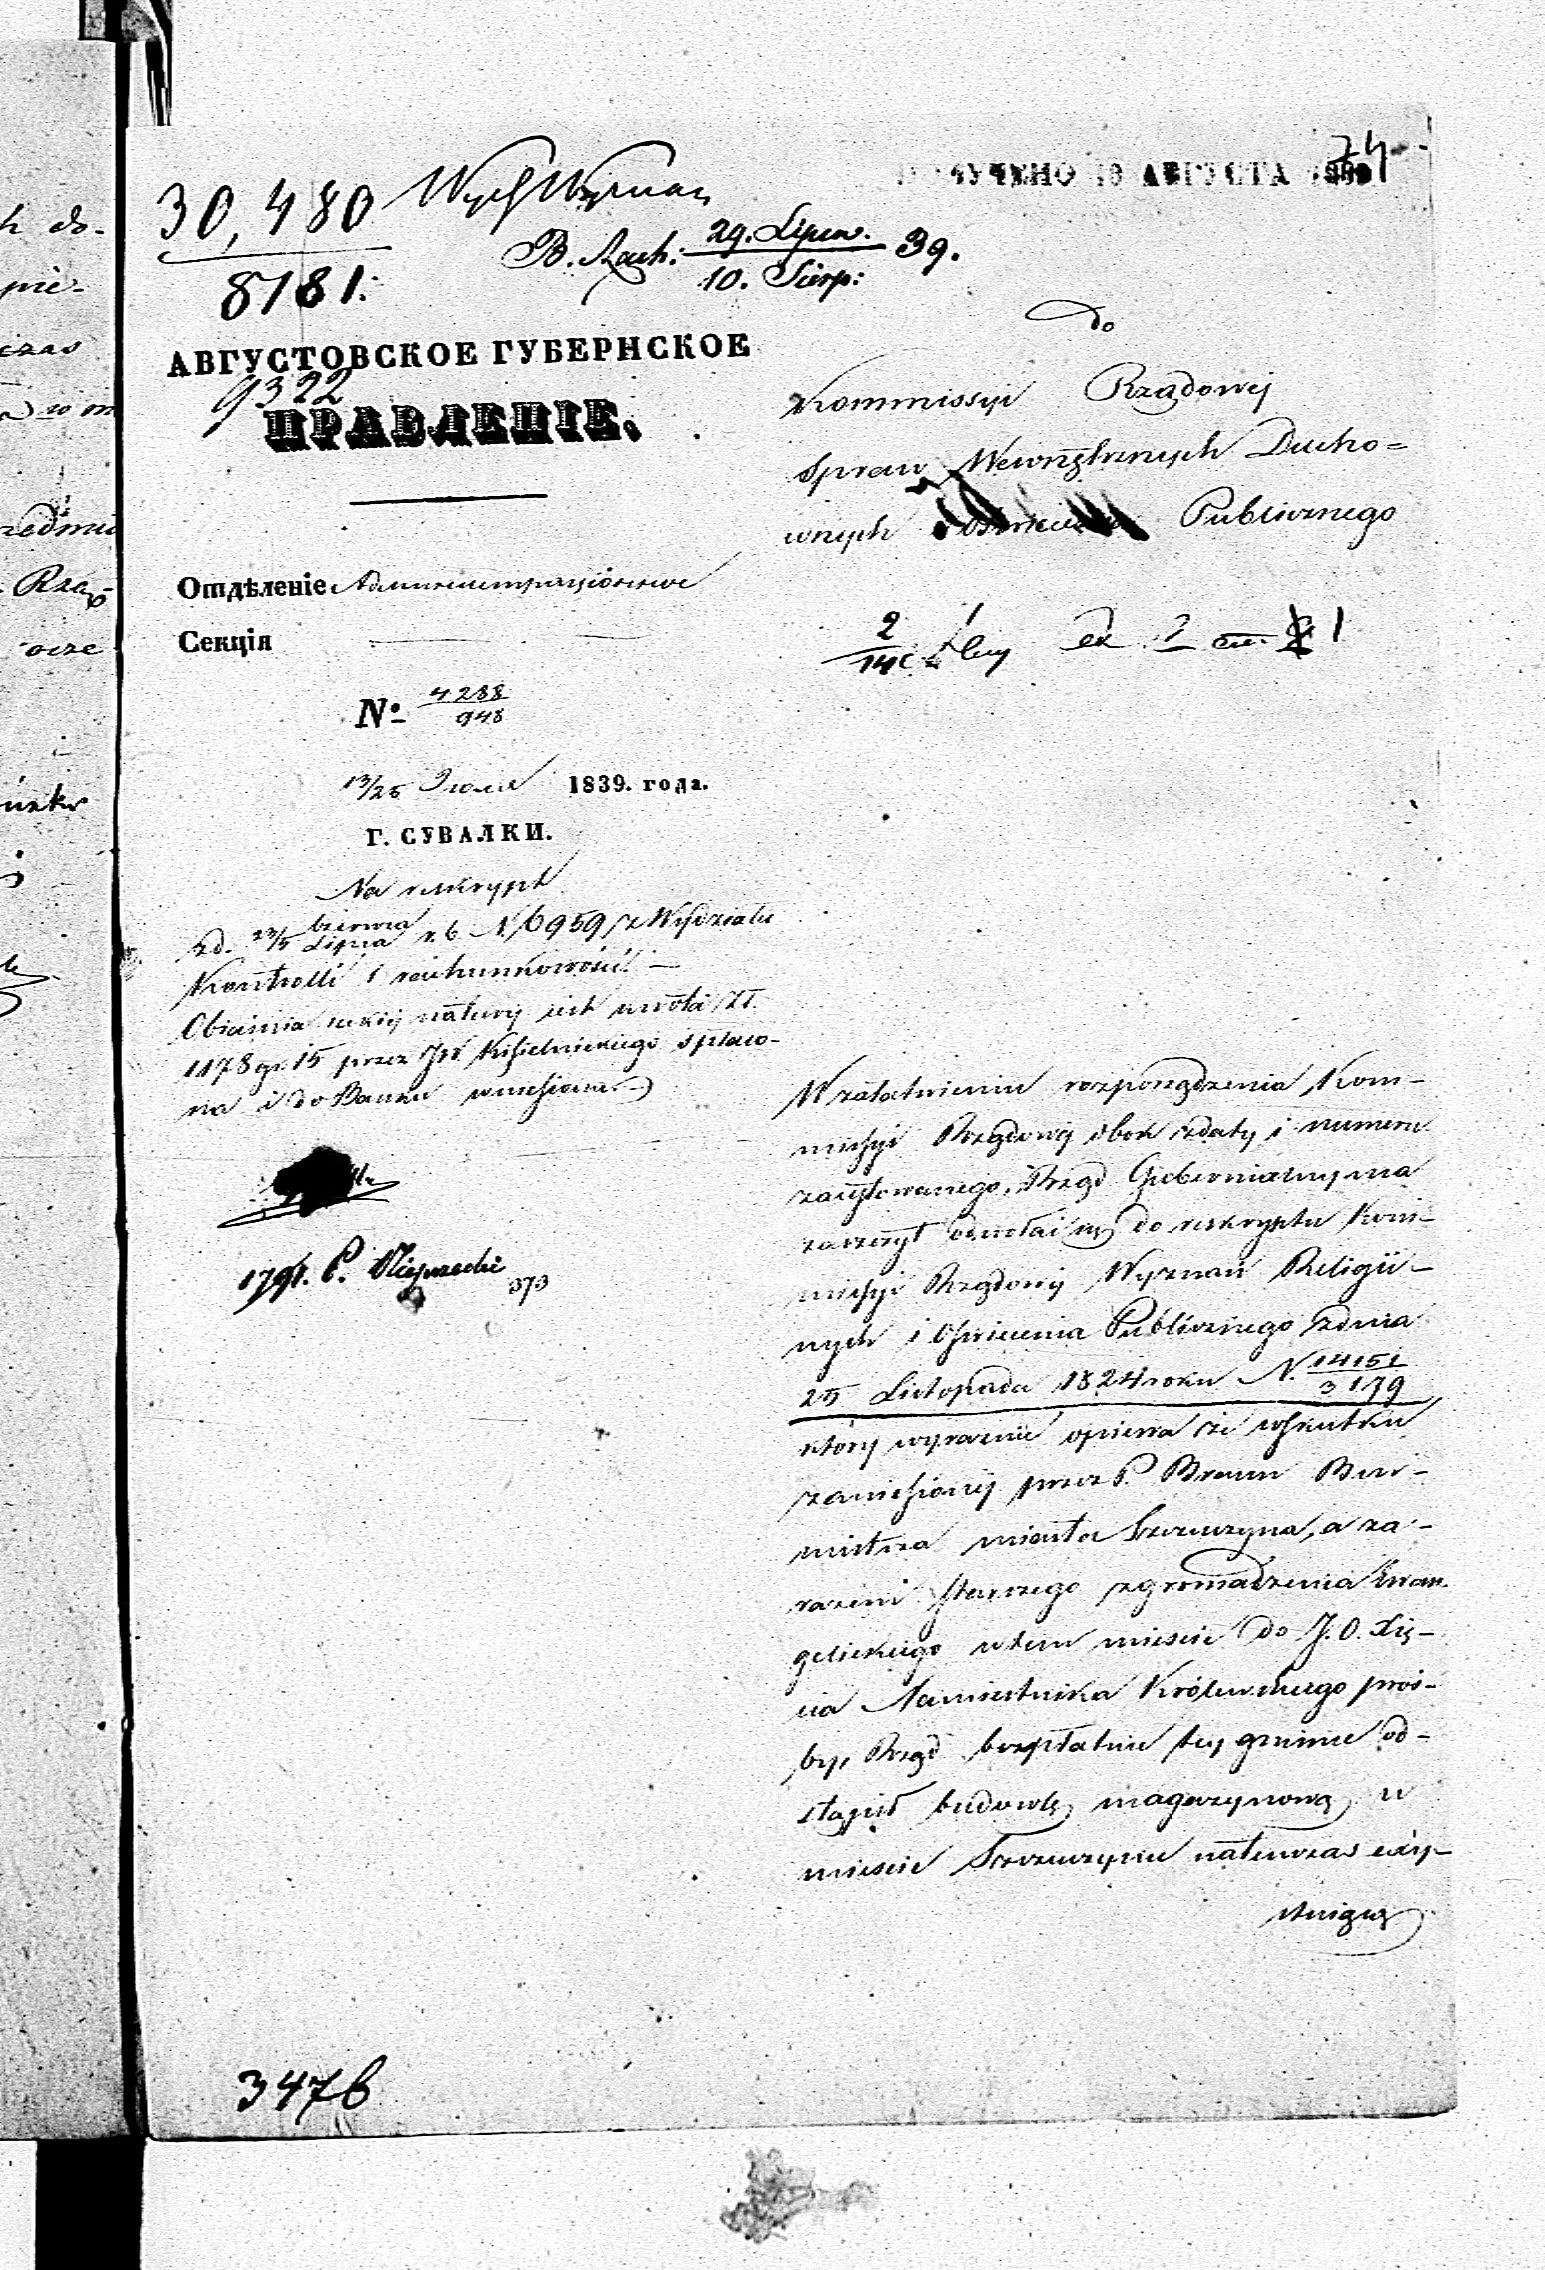 30,480
8181.
Wydz Wyznań
B. Rach: 29. Lipca. / 10. Sierp: 39.
ПОЛУЧЕНО 10 АВГУСТА
74
АВГУСТОВСКОЕ ГУБЕРНСКОЕ
9322
ПРАВЛЕНІЕ.
Отдѣленіе Администраціонное
Секція
№ 4288/948
13/25 Іюля 1839. года.
Г. СУВАЛКИ.
Na reskrypt
z d. 23/5 Czerwca/Lipca r. b. N. 6959 z Wydziału
Kontrolli i rachunkowości.
Objaśnia jakiej natury jest kwota Zł.
1178 gr. 15 przez JW Kisielnickiego spłaco-
na i do Banku wniesiona.
373
do
Kommissyi Rządowej
Spraw Wewnętrznych Ducho=
wnych i Oświecenia Publicznego
W załatwieniu rozporządzenia Kom-
missyi Rządowej obok z daty i numeru
zacytowanego, Rząd Gubernialny ma
zaszczyt odwołać się do reskryptu Kom-
missyi Rządowej Wyznań Religij-
nych i Oświecenia Publicznego z dnia
25 Listopada 1824 roku N. 14151/3179
który wyraźnie opiewa że w skutku
zaniesionej przez P. Braun Bur-
mistrza miasta Szczuczyna, a za-
razem starszego zgromadzenia Ewan-
gelickiego w tem mieście do J. O. Xię-
cia Namiestnika Królewskiego proś-
by, Rząd bezpłatnie tej gminie od-
stąpił budowlę magazynową w
mieście Szczuczynie natenczas exy-
stującą
3476